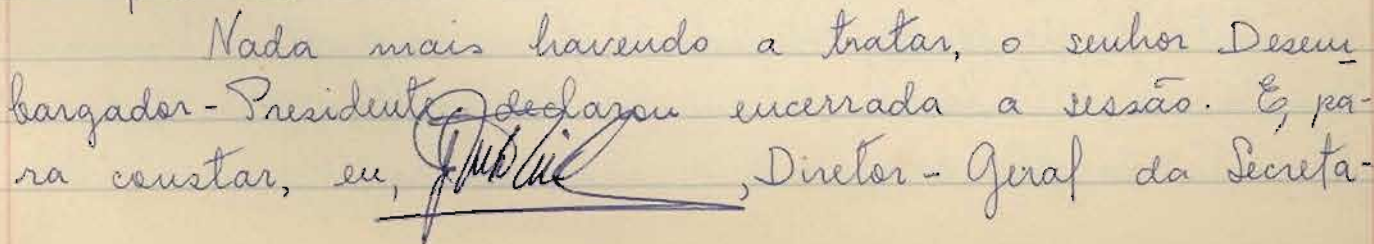 Nada mais havendo a tratar, o senhor Desem
bargador-Presidente declarou encerrada a sessão. E, pa-
ra constar, eu, , Diretor-Geral da Secreta-